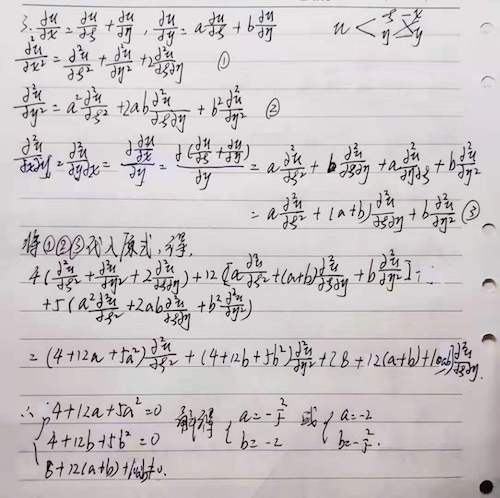 3. ∂u/∂x = ∂u/∂ξ + ∂u/∂η , ∂u/∂y = a ∂u/∂ξ + b ∂u/∂η u < ξ η x y
∂²u/∂x² = ∂²u/∂ξ² + ∂²u/∂η² + 2 ∂²u/∂ξ∂η ①
∂²u/∂y² = a² ∂²u/∂ξ² + 2ab ∂²u/∂ξ∂η + b² ∂²u/∂η² ②
∂²u/∂x∂y = ∂²u/∂y∂x = ∂ ∂u/∂x / ∂y = ∂(∂u/∂ξ + ∂u/∂η)/∂y = a ∂²u/∂ξ² + b ∂²u/∂ξ∂η + a ∂²u/∂η∂ξ + b ∂²u/∂η²
= a ∂²u/∂ξ² + (a+b) ∂²u/∂ξ∂η + b ∂²u/∂η² ③
将①②③代入原式,得
4(∂²u/∂ξ² + ∂²u/∂η² + 2 ∂²u/∂ξ∂η) + 12[a ∂²u/∂ξ² + (a+b) ∂²u/∂ξ∂η + b ∂²u/∂η²]
+5(a² ∂²u/∂ξ² + 2ab ∂²u/∂ξ∂η + b² ∂²u/∂η²)
= (4+12a+5a²) ∂²u/∂ξ² + (4+12b+5b²) ∂²u/∂η² + [8+12(a+b)+10ab] ∂²u/∂ξ∂η.
∴ { 4+12a+5a²=0 解得 { a=-2/5 或 { a=-2
4+12b+5b²=0 b=-2 b=-2/5.
8+12(a+b)+10ab≠0.